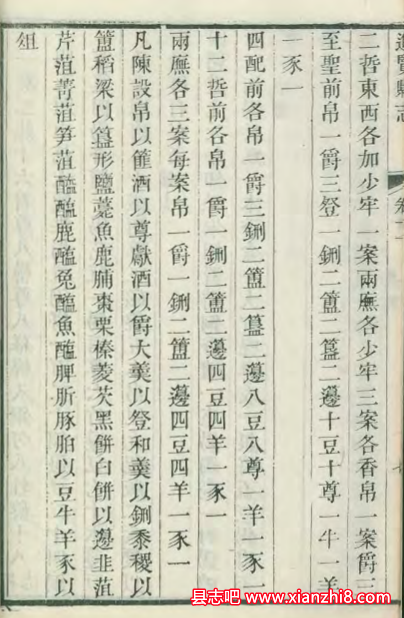 進賢縣志
卷二
二哲東西各加少牢一案兩廡各少牢三案各香帛一案爵三
至聖前帛一爵三登一鉶二簠二簋二籩十豆十尊一牛一羊
一豕一
四配前各帛一爵三鉶二簠二簋二籩八豆八尊一羊一豕一
十二哲前各帛一爵一鉶二簠二籩四豆四羊一豕一
兩廡各三案每案帛一爵一鉶二簠二籩四豆四羊一豕一
凡陳設帛以篚酒以尊獻酒以爵大羹以登和羹以鉶黍稷以
簠稻粱以簋形鹽薧魚鹿脯棗栗榛菱芡黑餅白餅以籩韭菹
芹菹菁菹笋菹醓醢鹿醢兔醢魚醢脾肵豚胉以豆牛羊豕以
俎
县志吧 www.xianzhi8.com